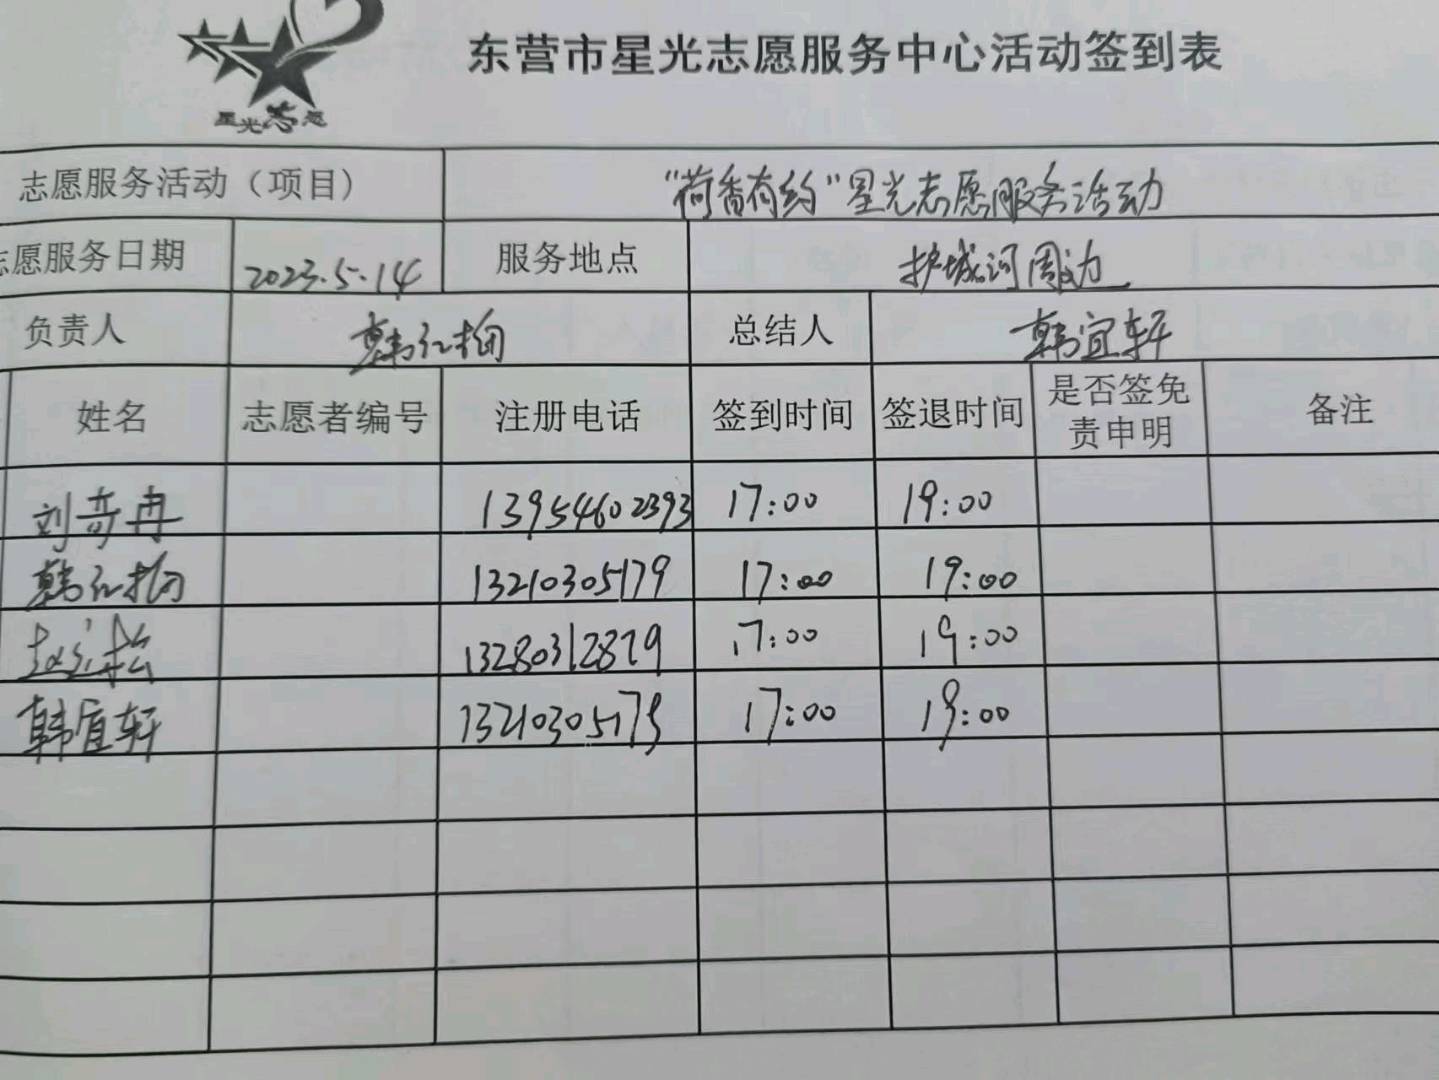 东营市星光志愿服务中心活动签到表
星光志愿
志愿服务活动（项目） “荷香有约”星光志愿服务活动
志愿服务日期 2023.5.14 服务地点 护城河周边
负责人 韩红 总结人 韩宜轩
姓名 志愿者编号 注册电话 签到时间 签退时间 是否签免责申明 备注
刘奇冉 13954602393 17:00 19:00
韩红 13210305179 17:00 19:00
赵 松 13280312879 17:00 19:00
韩宜轩 13210305179 17:00 19:00